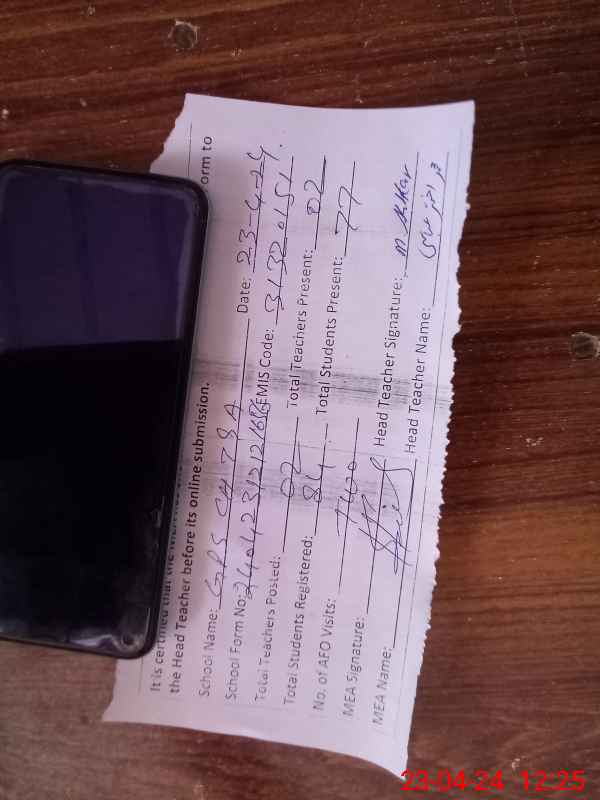 It is certified that the
orm to
the Head Teacher before its online submission.
School Name: GPS CH 78 A Date: 23-4-24
School Form No: EMIS Code: 31320151
Total Teachers Posted: 02 Total Teachers Present: 02
Total Students Registered: 84 Total Students Present: 77
No. of AFO Visits: Two
MEA Signature: Head Teacher Signature:
MEA Name: Head Teacher Name:
23-04-24 12:25